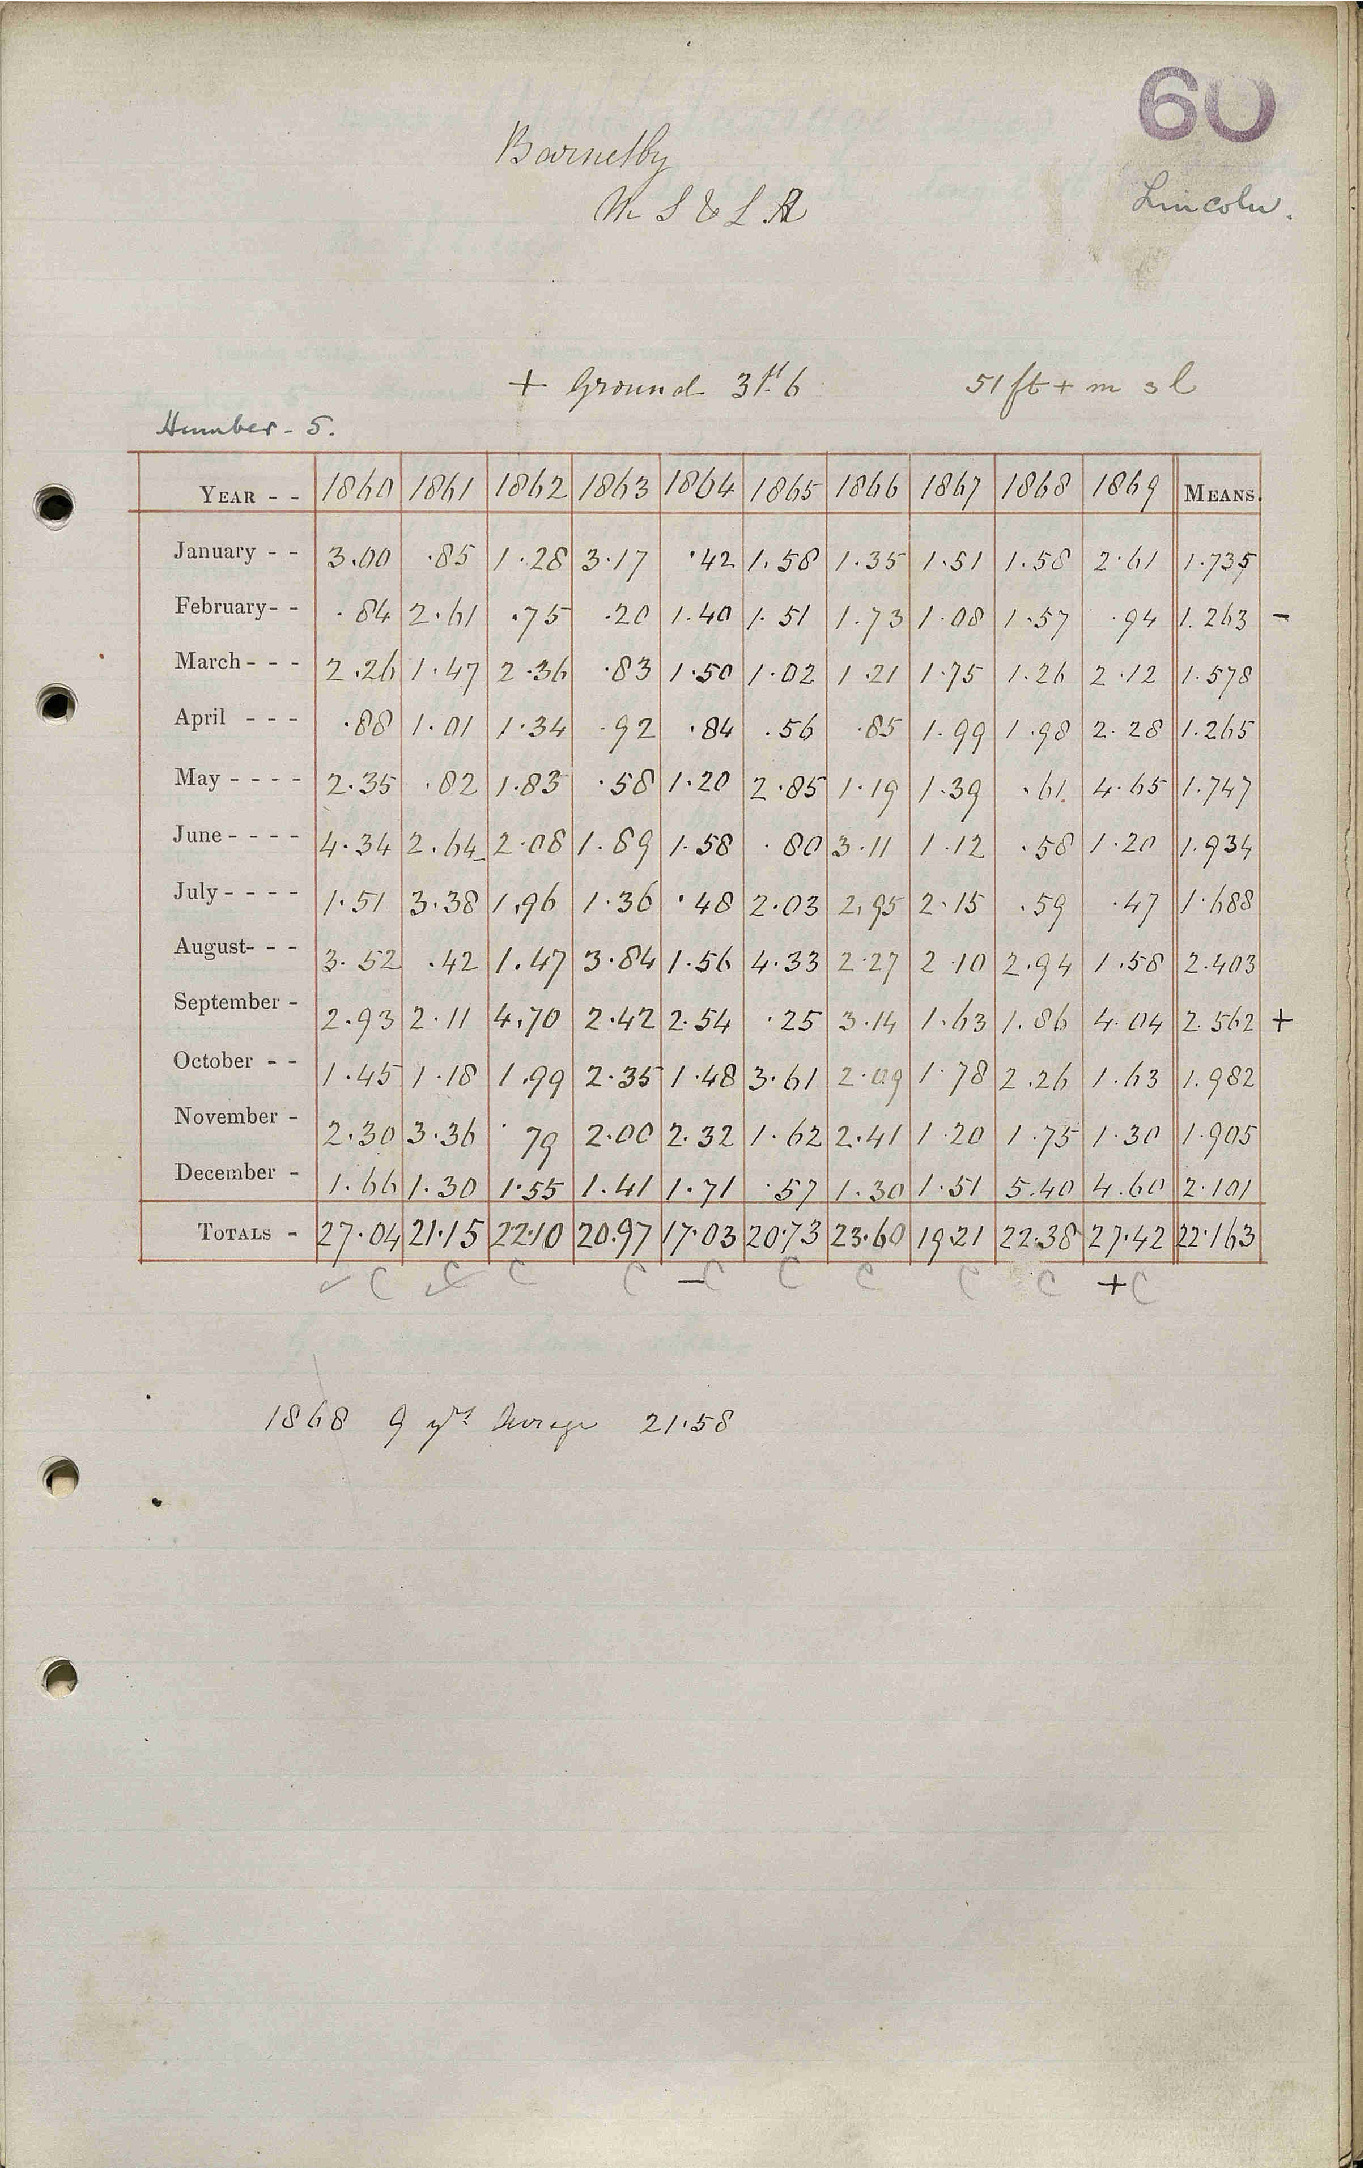 60
Barnetby
M S & L R
Lincoln.
+ Ground 3ft 6
51 ft + m s l
Humber - 5.
YEAR - - 1860 1861 1862 1863 1864 1865 1866 1867 1868 1869 MEANS.
January - - 3.00 .85 1.28 3.17 .42 1.58 1.35 1.51 1.58 2.61 1.735
February - - .84 2.61 .75 .20 1.40 1.51 1.73 1.08 1.57 .94 1.263 -
March - - - 2.26 1.47 2.36 .83 1.50 1.02 1.21 1.75 1.26 2.12 1.578
April - - - .88 1.01 1.34 .92 .84 .56 .85 1.99 1.98 2.28 1.265
May - - - - 2.35 .82 1.83 .58 1.20 2.85 1.19 1.39 .61 4.65 1.747
June - - - - 4.34 2.64 2.08 1.89 1.58 .80 3.11 1.12 .58 1.20 1.934
July - - - - 1.51 3.38 1.96 1.36 .48 2.03 2.95 2.15 .59 .47 1.688
August - - - 3.52 .42 1.47 3.84 1.56 4.33 2.27 2.10 2.94 1.58 2.403
September - 2.93 2.11 4.70 2.42 2.54 .25 3.14 1.63 1.86 4.04 2.562 +
October - - 1.45 1.18 1.99 2.35 1.48 3.61 2.09 1.78 2.26 1.63 1.982
November - 2.30 3.36 .79 2.00 2.32 1.62 2.41 1.20 1.75 1.30 1.905
December - 1.66 1.30 1.55 1.41 1.71 .57 1.30 1.51 5.40 4.60 2.101
TOTALS - 27.04 21.15 22.10 20.97 17.03 20.73 23.60 19.21 22.38 27.42 22.163
✓ C ✓ C C C - C C C C C + C
1868 9 yrs Average 21.58